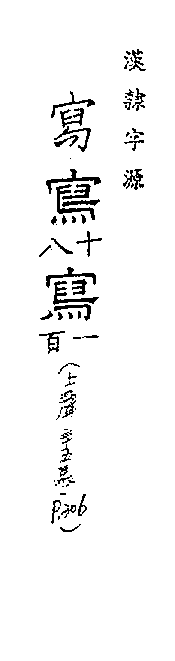 漢隸字源
寫寫十八寫一百(上聲 P.306)